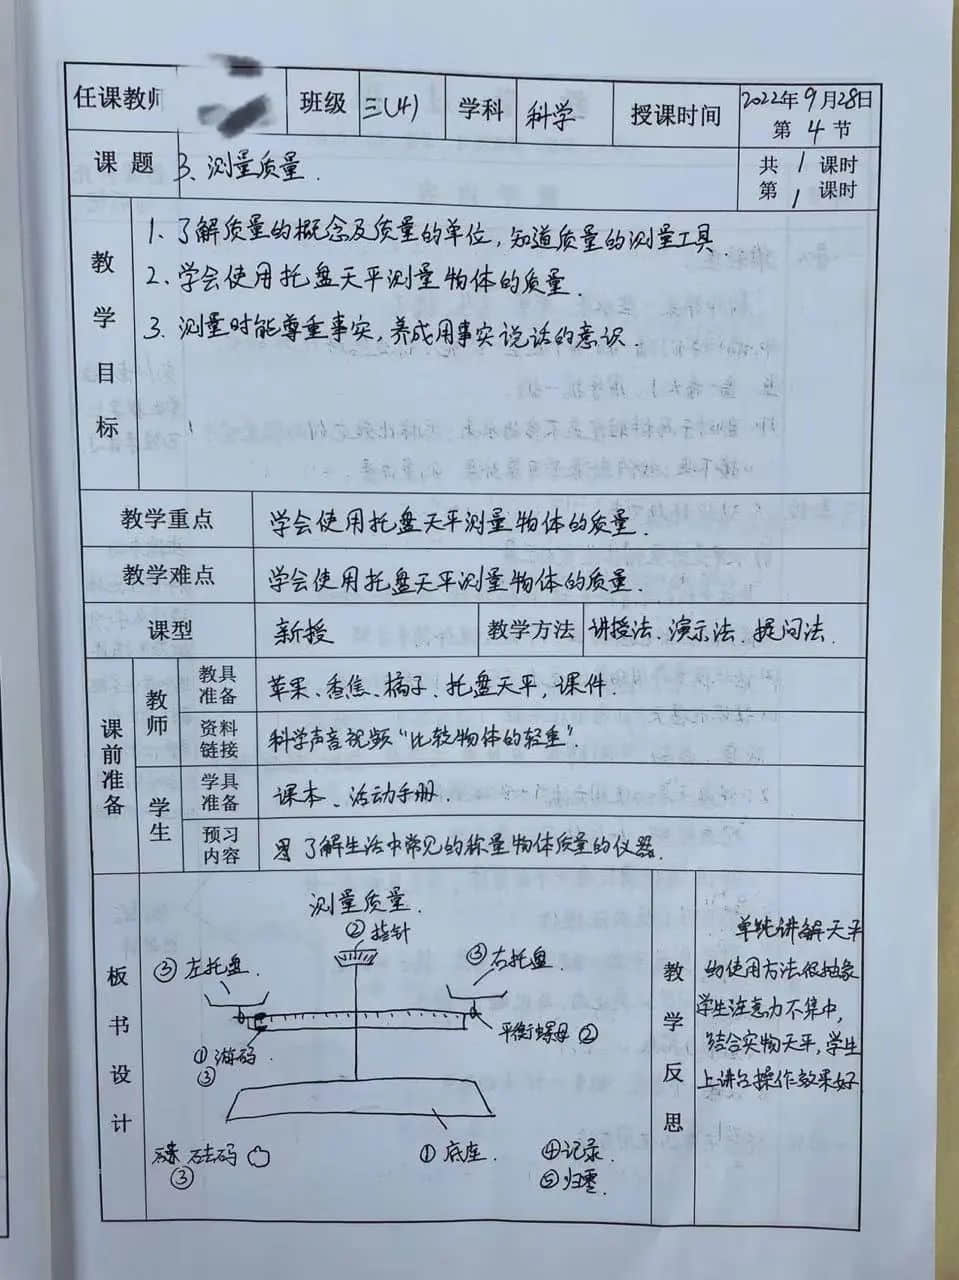 任课教师 班级 三(4) 学科 科学 授课时间 2022年9月28日
第 4 节
课题 3、测量质量. 共 1 课时
第 1 课时
教学目标
1、了解质量的概念及质量的单位,知道质量的测量工具.
2、学会使用托盘天平测量物体的质量.
3、测量时能尊重事实,养成用事实说话的意识.
教学重点 学会使用托盘天平测量物体的质量.
教学难点 学会使用托盘天平测量物体的质量.
课型 新授 教学方法 讲授法、演示法、提问法.
课前准备
教师
教具准备 苹果、香焦、橘子、托盘天平,课件.
资料链接 科学声音视频“比较物体的轻重”
学生
学具准备 课本、活动手册.
预习内容 了解生活中常见的称量物体质量的仪器.
板书设计
测量质量.
②指针
③左托盘.
③右托盘.
平衡螺母②
①游码.
③
砝码
③
①底座.
④记录.
⑤归零.
教学反思
单纯讲解天平
的使用方法很抽象
学生注意力不集中,
结合实物天平,学生
上讲台操作效果好